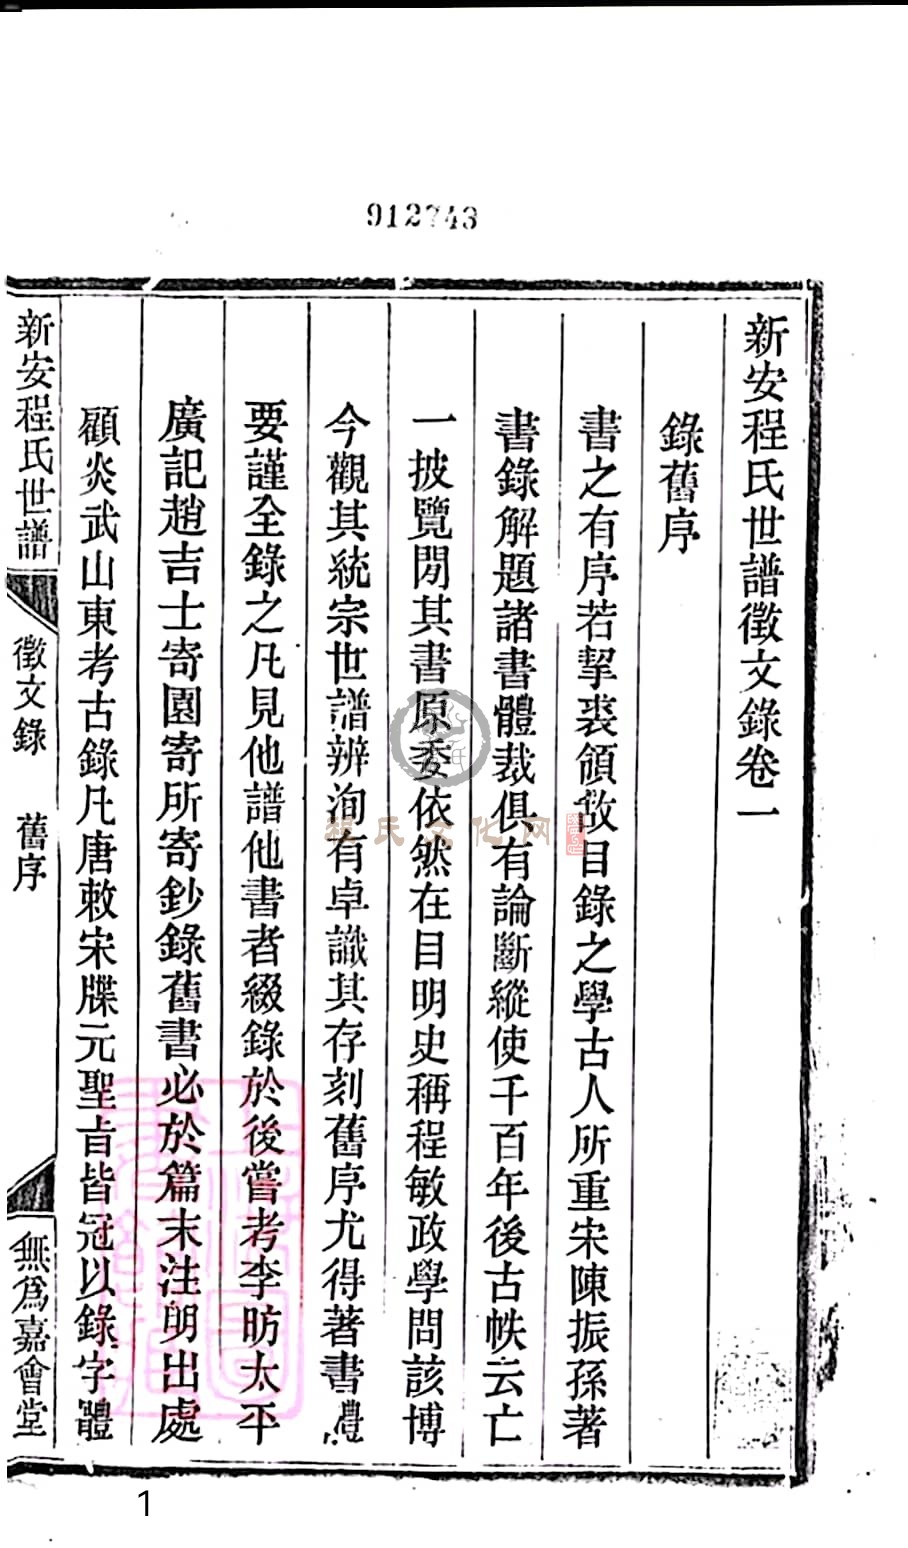 912743
新安程氏世譜徵文錄卷一
錄舊序
書之有序若挈裘領故目錄之學古人所重宋陳振孫著
書錄解題諸書體裁俱有論斷縱使千百年後古帙云亡
一披覽閒其書原委依然在目明史稱程敏政學問該博
今觀其統宗世譜辨洵有卓識其存刻舊序尤得著書體
要謹全錄之凡見他譜他書者綴錄於後嘗考李昉太平
廣記趙吉士寄園寄所寄鈔錄舊書必於篇末注明出處
顧炎武山東考古錄凡唐敕宋牒元聖旨皆冠以錄字體
新安程氏世譜
徵文錄
舊序
無爲嘉會堂
程氏文化网
1